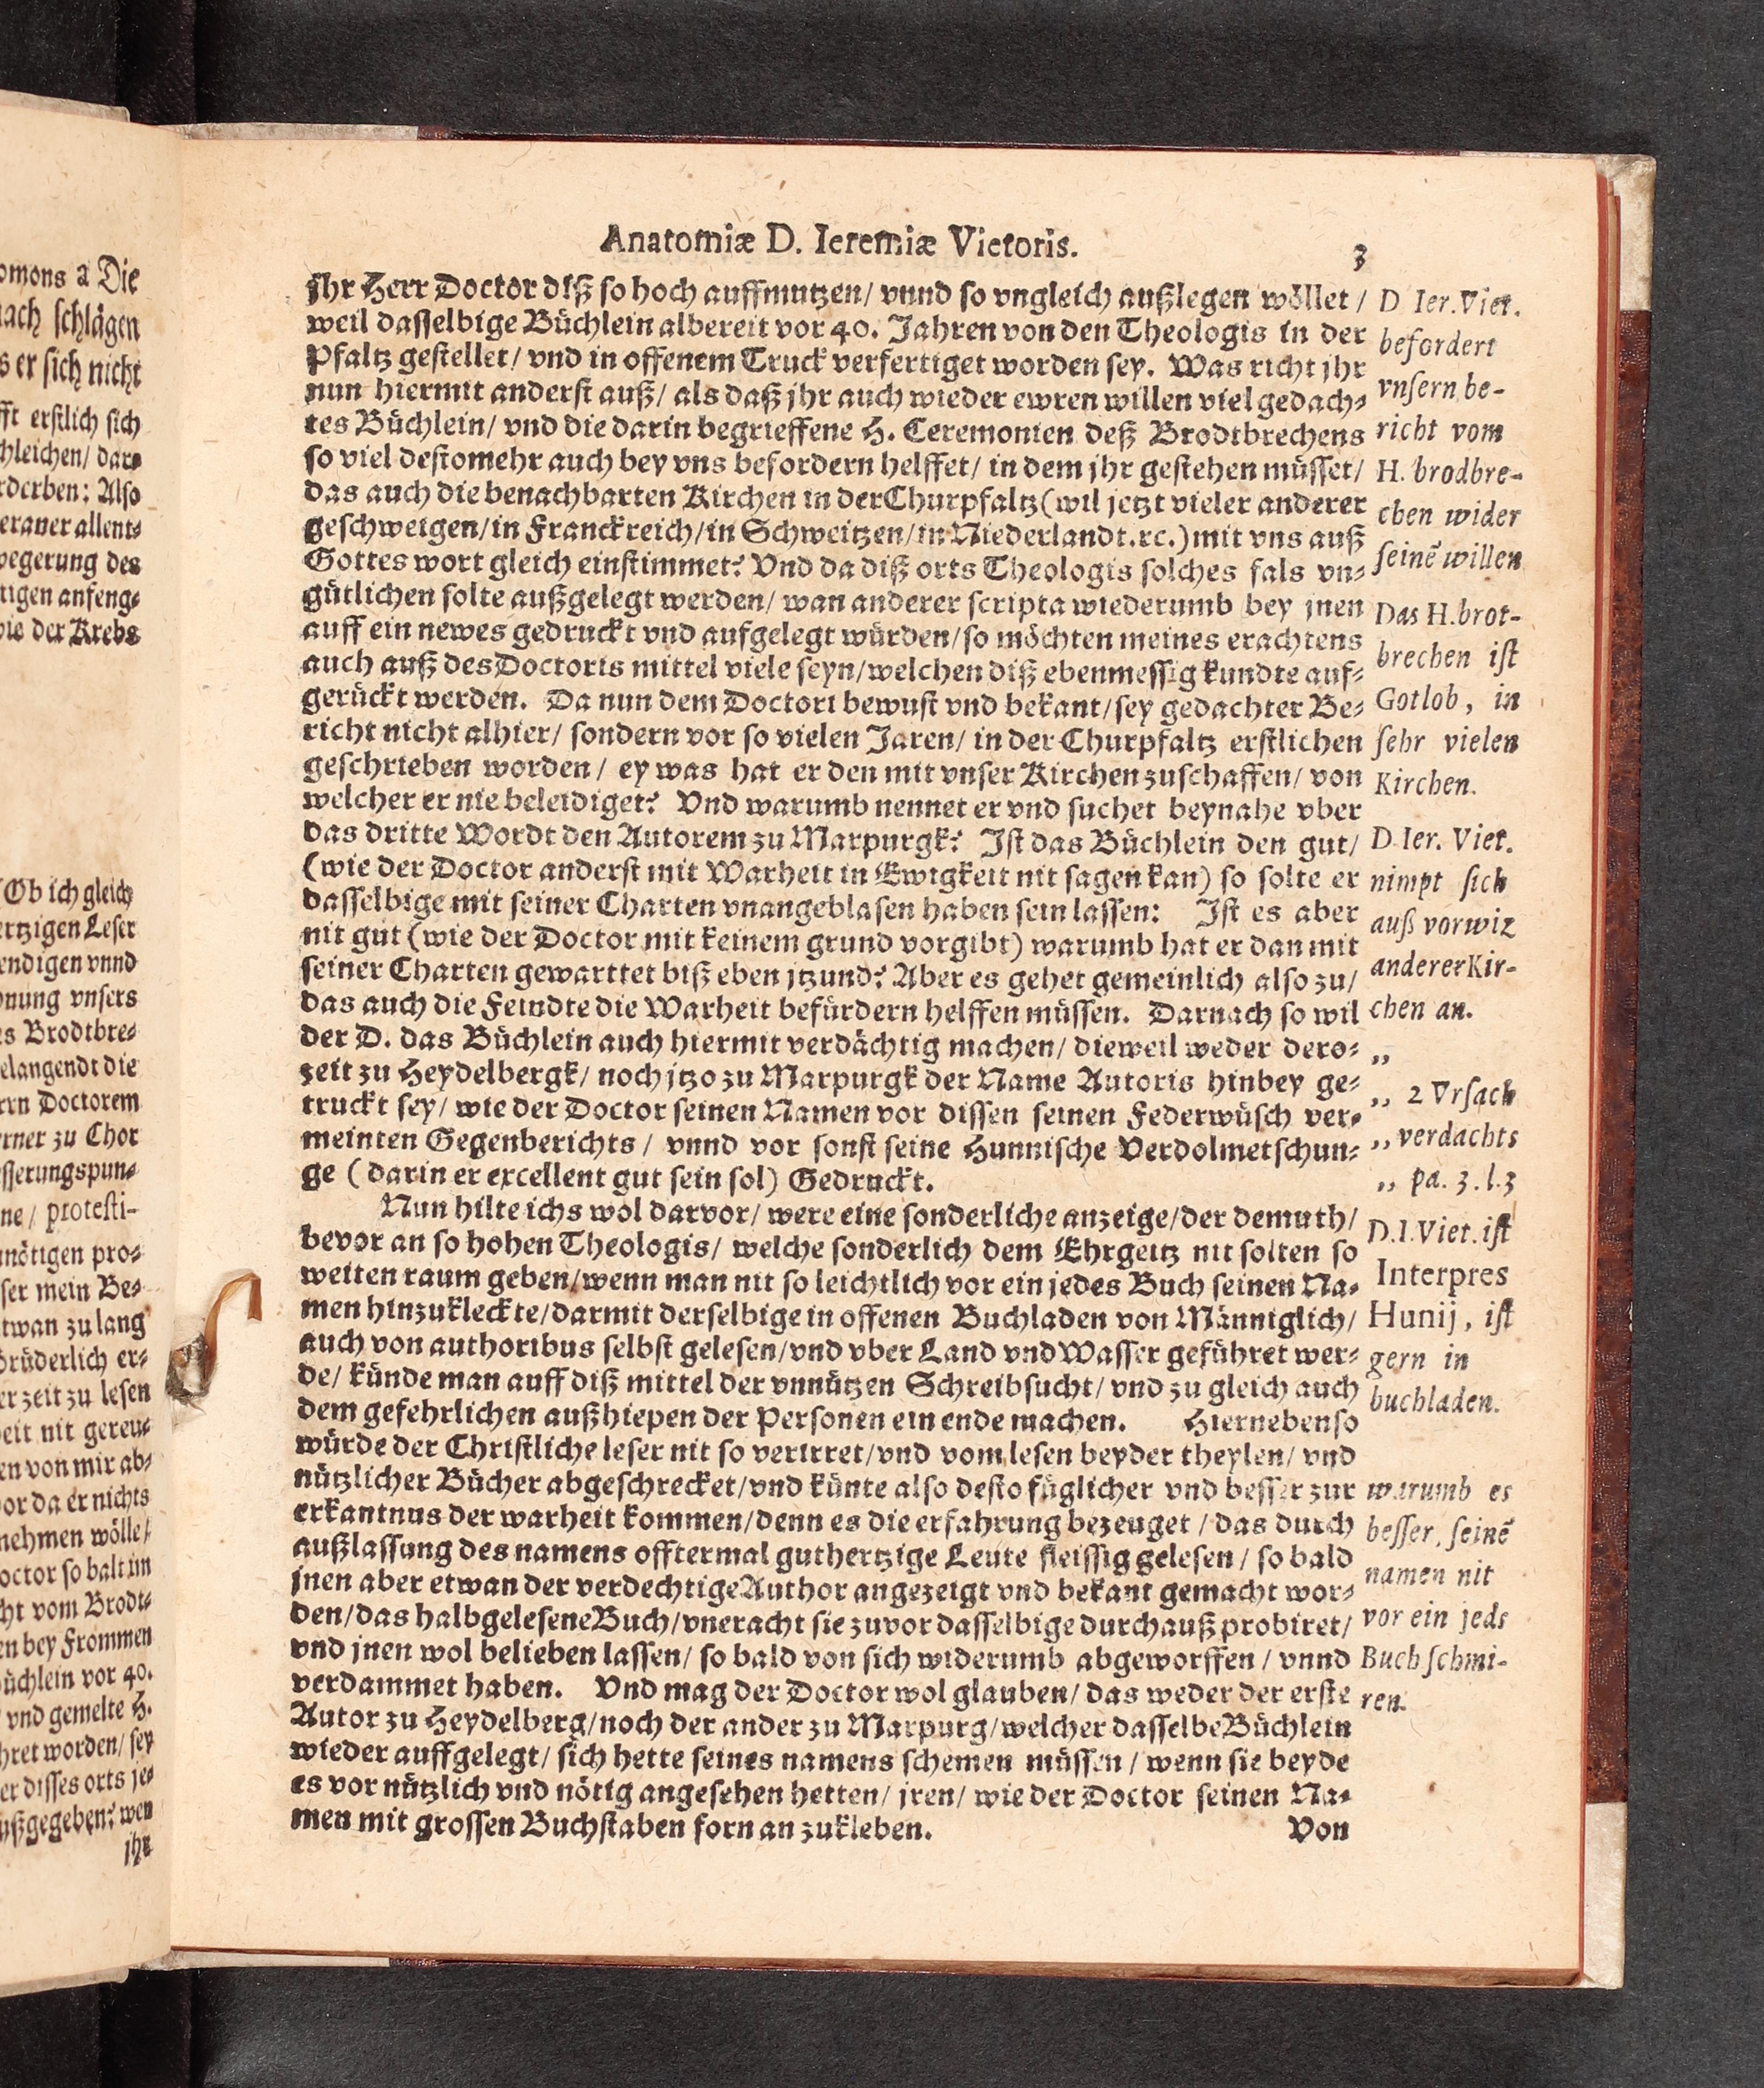 Anatomiæ D. Ieremiæ Vietoris. 3
jhr Herr Doctor diß so hoch auffmutzen/ vnnd so vngleich außlegen wöllet /
weil dasselbige Büchlein albereit vor 40. Jahren von den Theologis in der
Pfaltz gestellet/ vnd in offenem Truck verfertiget worden sey. Was richt jhr
nun hiermit anderst auß/ als daß jhr auch wieder ewren willen viel gedach-
tes Büchlein/ vnd die darin begrieffene H. Ceremonien deß Brodtbrechens
so viel destomehr auch bey vns befordern helffet/ in dem jhr gestehen müsset/
das auch die benachbarten Kirchen in der Churpfaltz (wil jetzt vieler anderer
geschweigen/in Franckreich/in Schweitzen/in Niederlandt.rc.) mit vns auß
Gottes wort gleich einstimmet? Vnd da diß orts Theologis solches fals vn-
gütlichen solte außgelegt werden/ wan anderer scripta wiederumb bey jnen
auff ein newes gedruckt vnd aufgelegt würden/so möchten meines erachtens
auch auß des Doctoris mittel viele seyn/welchen diß ebenmessig kundte auf-
gerückt werden. Da nun dem Doctori bewust vnd bekant/sey gedachter Be-
richt nicht alhier/ sondern vor so vielen Jaren/ in der Churpfaltz erstlichen
geschrieben worden/ ey was hat er den mit vnser Kirchen zuschaffen/ von
welcher er nie beleidiget? Vnd warumb nennet er vnd suchet beynahe vber
das dritte Wordt den Autorem zu Marpurgk? Ist das Büchlein den gut/
(wie der Doctor anderst mit Warheit in Ewigkeit nit sagen kan) so solte er
dasselbige mit seiner Charten vnangeblasen haben sein lassen: Ist es aber
nit gut (wie der Doctor mit keinem grund vorgibt) warumb hat er dan mit
seiner Charten gewarttet biß eben jtzund? Aber es gehet gemeinlich also zu/
das auch die Feindte die Warheit befürdern helffen müssen. Darnach so wil
der D. das Büchlein auch hiermit verdächtig machen/ dieweil weder dero-
zeit zu Heydelbergk/ noch jtzo zu Marpurgk der Name Autoris hinbey ge-
truckt sey/ wie der Doctor seinen Namen vor dissen seinen Federwüsch ver-
meinten Gegenberichts / vnnd vor sonst seine Hunnische Verdolmetschun-
ge ( darin er excellent gut sein sol) Gedruckt.
Nun hilte ichs wol darvor/ were eine sonderliche anzeige/der demuth/
bevor an so hohen Theologis/ welche sonderlich dem Ehrgeitz nit solten so
weiten raum geben/wenn man nit so leichtlich vor ein jedes Buch seinen Na-
men hinzukleckte/darmit derselbige in offenen Buchladen von Männiglich/
auch von authoribus selbst gelesen/vnd vber Land vnd Wasser geführet wer-
de/ künde man auff diß mittel der vnnützen Schreibsucht/ vnd zu gleich auch
dem gefehrlichen außhiepen der Personen ein ende machen. Hiernebenso
würde der Christliche leser nit so verirret/vnd vom lesen beyder theylen/ vnd
nützlicher Bücher abgeschrecket/vnd künte also desto füglicher vnd besser zur
erkantnus der warheit kommen/denn es die erfahrung bezeuget / das durch
außlassung des namens offtermal guthertzige Leute fleissig gelesen / so bald
jnen aber etwan der verdechtige Author angezeigt vnd bekant gemacht wor-
den/das halbgelesene Buch/vneracht sie zuvor dasselbige durchauß probiret/
vnd jnen wol belieben lassen/ so bald von sich widerumb abgeworffen / vnnd
verdammet haben. Vnd mag der Doctor wol glauben/ das weder der erste
Autor zu Heydelberg/noch der ander zu Marpurg/welcher dasselbe Büchlein
wieder auffgelegt/ sich hette seines namens schemen müssen / wenn sie beyde
es vor nützlich vnd nötig angesehen hetten/ jren/ wie der Doctor seinen Na-
men mit grossen Buchstaben forn an zukleben. Von
D Ier. Viet.
befordert
vnsern be-
richt vom
H. brodbre-
chen wider
seinē willen
Das H. brot-
brechen ist
Gotlob, in
sehr vielen
Kirchen.
D. Ier. Viet.
nimpt sich
auß vorwiz
anderer Kir-
chen an.
„
„ 2 Vrsach
„ verdachts
„ pa. 3. l. 3
D. I. Viet. ist
Interpres
Hunij, ist
gern in
buchladen.
warumb es
besser, seinē
namen nit
vor ein jeds
Buch schmi-
ren.
omons a Die
nach schlägen
s er sich nicht
fft erstlich sich
hleichen/ dar-
rderben: Also
eraner allent-
wegerung des
tigen anfeng-
wie der Krebs
(Ob ich gleich
ertzigen Leser
endigen vnnd
nung vnsers
s Brodtbre-
elangendt die
rrn Doctorem
erner zu Chor
sserungspun-
ne / protesti-
nötigen pro-
ser mein Be-
twan zu lang
brüderlich er-
er zeit zu lesen
eit nit gereu-
en von mir ab-
or da er nichts
nehmen wölle/
octor so balt im
ht vom Brodt-
en bey Frommen
üchlein vor 40.
vnd gemelte H.
hret worden/ sey
er disses orts je-
ußgegeben? wen
jhr